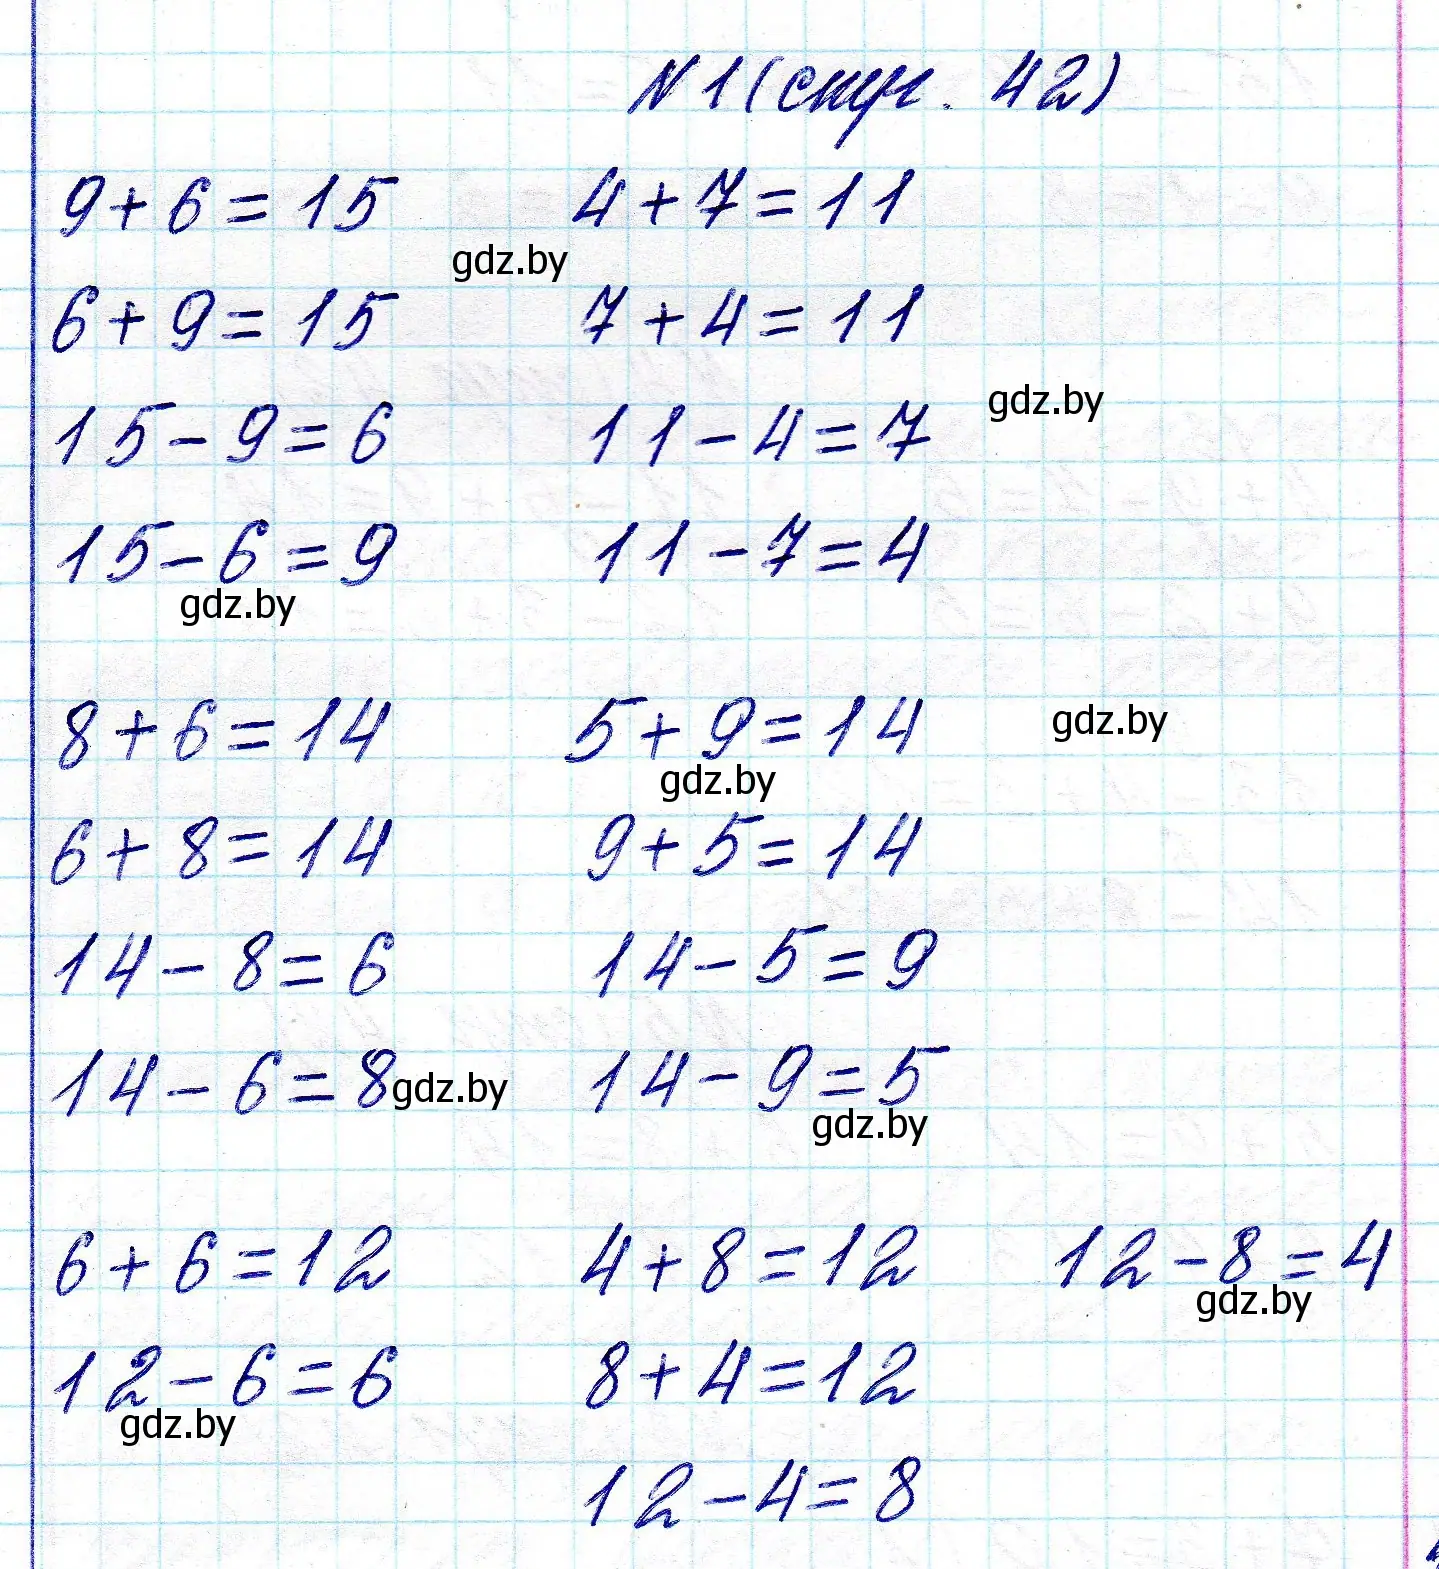 № 1 (стр. 42)
9 + 6 = 15 4 + 7 = 11
gdz.by
6 + 9 = 15 7 + 4 = 11
gdz.by
15 - 9 = 6 11 - 4 = 7
15 - 6 = 9 11 - 7 = 4
gdz.by
8 + 6 = 14 5 + 9 = 14 gdz.by
gdz.by
6 + 8 = 14 9 + 5 = 14
14 - 8 = 6 14 - 5 = 9
14 - 6 = 8 gdz.by 14 - 9 = 5
gdz.by
6 + 6 = 12 4 + 8 = 12 12 - 8 = 4
gdz.by
12 - 6 = 6 8 + 4 = 12
gdz.by
12 - 4 = 8